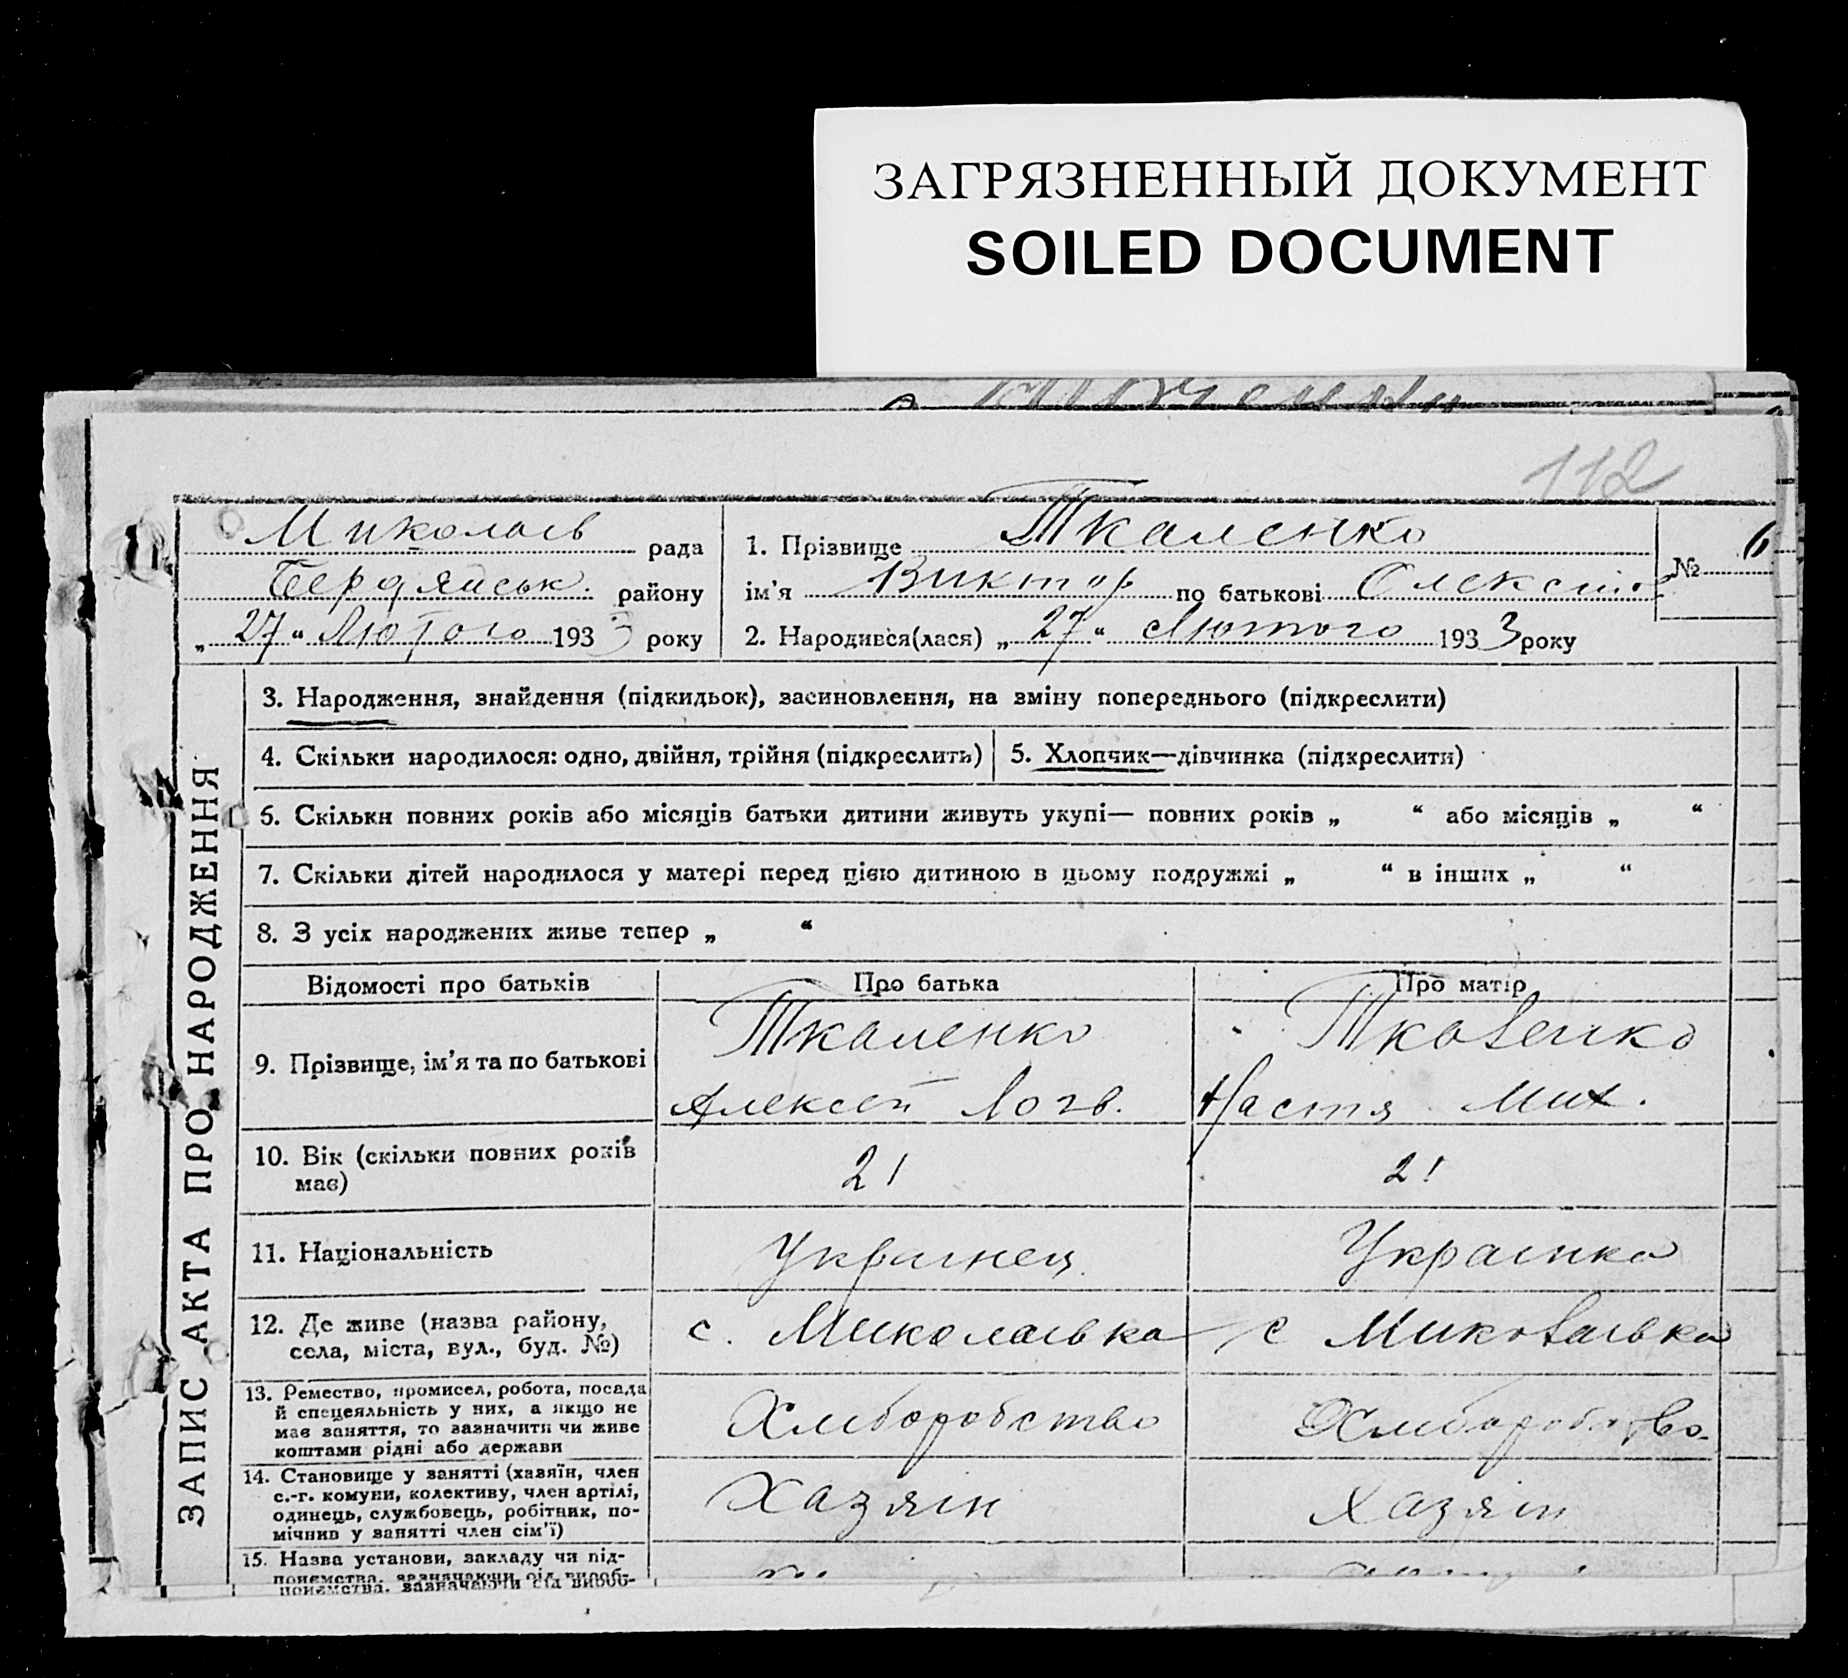 ЗАГРЯЗНЕННЫЙ ДОКУМЕНТ
SOILED DOCUMENT
112
Миколаїв рада
Бердянськ. району
„ 27 “ Лютого 1933 року
1. Прізвище Ткаленко
ім’я Виктор по батькові
№ 6
2. Народився(лася) „ 27 “ Лютого 1933 року
ЗАПИС АКТА ПРО НАРОДЖЕННЯ
3. Народження, знайдення (підкидьок), засиновлення, на зміну попереднього (підкреслити)
4. Скільки народилося: одно, двійня, трійня (підкреслить)
5. Хлопчик—дівчинка (підкреслити)
6. Скільки повних років або місяців батьки дитини живуть укупі— повних років „ “ або місяців „ “
7. Скільки дітей народилося у матері перед цією дитиною в цьому подружжі „ “ в інших „ “
8. З усіх народжених живе тепер „ “
Відомості про батьків Про батька Про матір
9. Прізвище, ім’я та по батькові
Ткаленко
Алексей Логв.
Ткаленко
Настя Мих.
10. Вік (скільки повних років
має)
21
21
11. Національність
Украінец
Украінка
12. Де живе (назва району,
села, міста, вул., буд. №)
с. Миколаївка
с Миколаївка
13. Ремество, промисел, робота, посада
й спецеяльність у них, а якщо не
має заняття, то зазначити чи живе
коштами рідні або держави
Хліборобство
Хліборобство
14. Становище у занятті (хазяїн, член
с.-г. комуни, колективу, член артілі,
одинець, службовець, робітник, по-
мічнив у занятті член сім’ї)
Хазяін
Хазяін
15. Назва установи, закладу чи під-
приємства, зазначаючи рід вироб-